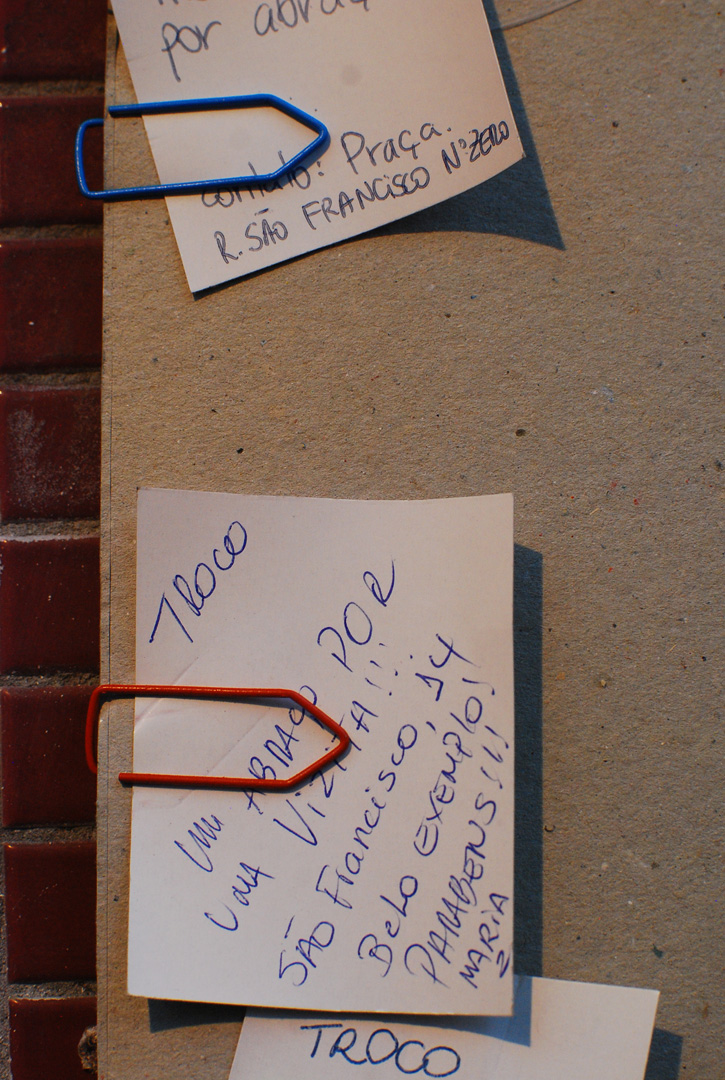 por abraç
contato: Praça.
R. SÃO FRANCISCO Nº ZERO
TROCO
UM ABRAÇO POR
UMA VIZITA!!!
SÃO Francisco, 14
BELO EXEMPLO!
PARABENS!!!
MARIA
TROCO